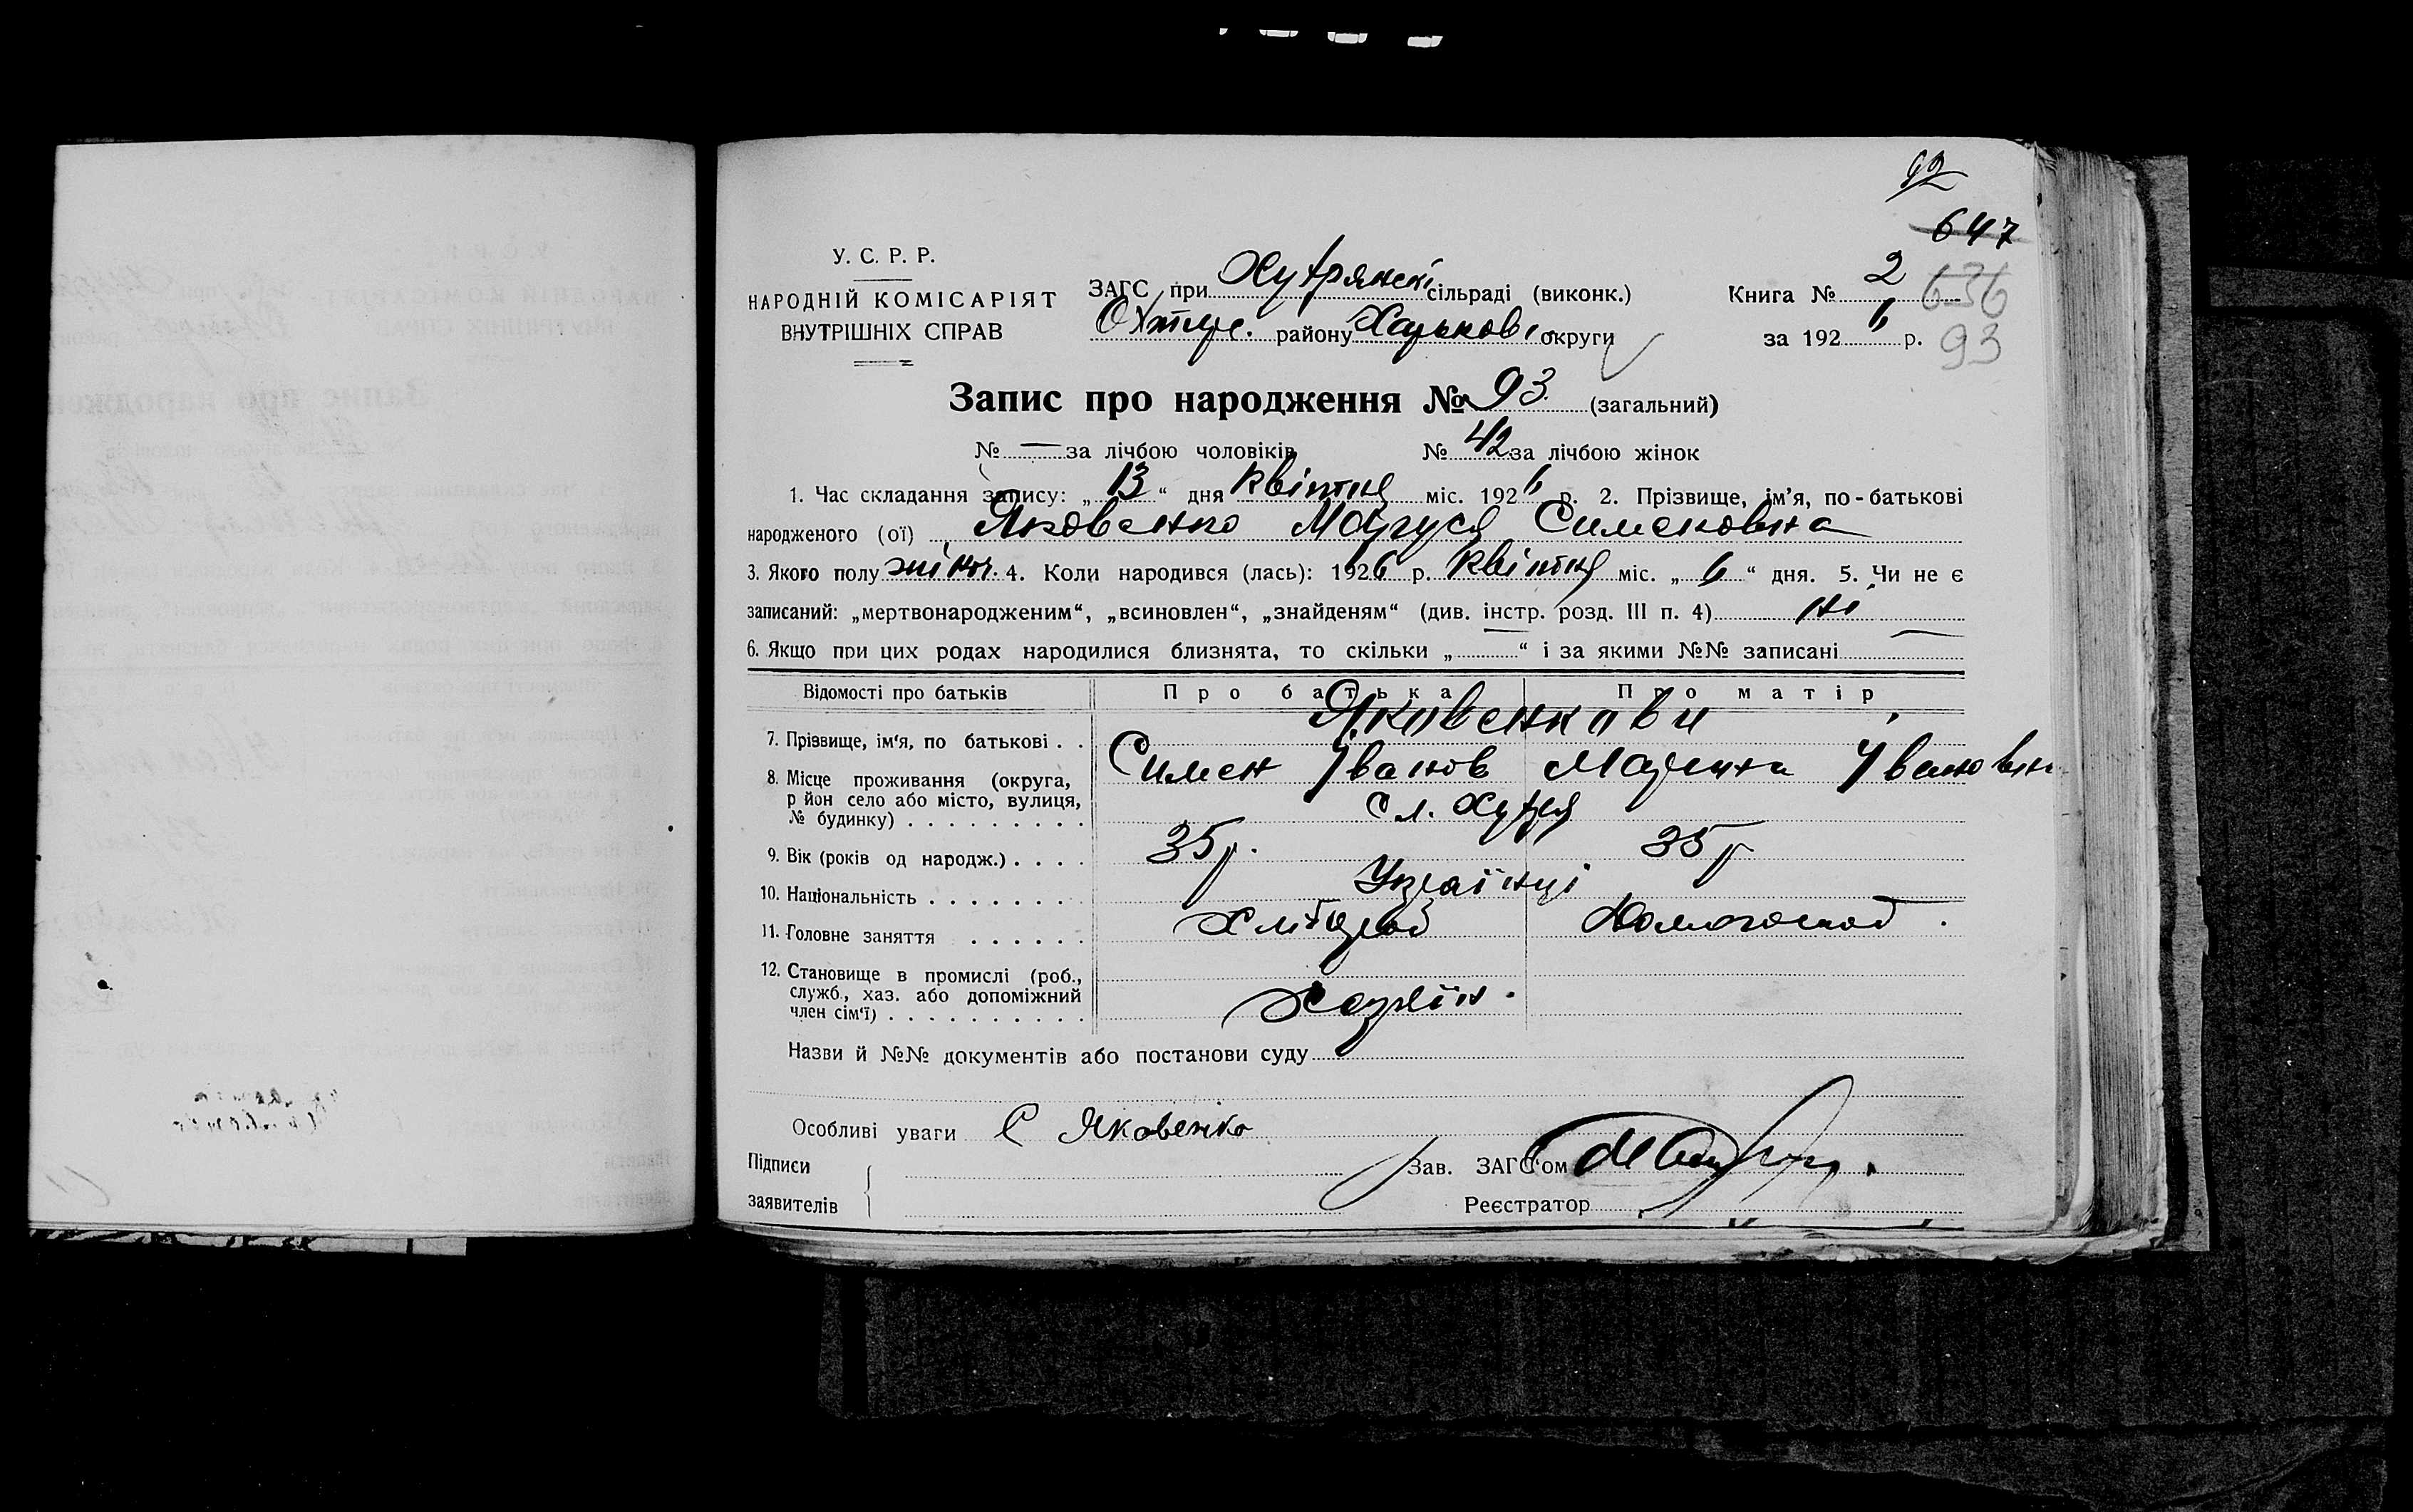 92
647
У. С. Р. Р.
НАРОДНІЙ КОМІСАРІЯТ
ВНУТРІШНІХ СПРАВ
ЗАГС при Хутрянскі сільраді (виконк.)
Охтир. району Харьков. округи
Книга № 2 636
за 1926 р. 93
Запис про народження № 93 (загальний)
№ — за лічбою чоловіків № 42 за лічбою жінок
1. Час складання запису: „13“ дня Квітня міс. 1926 р. 2. Прізвище, ім'я, по-батькові
народженого (ої) Яковенко Маруся Сименовна
3. Якого полу жіноч. 4. Коли народився (лась): 1926 р. Квітня міс. „6“ дня. 5. Чи не є
записаний: „мертвонародженим“, „всиновлен“, „знайденям“ (див. інстр. розд. III п. 4) ні
6. Якщо при цих родах народилися близнята, то скільки „—“ і за якими №№ записані —
Відомості про батьків Про батька Про матір
Яковенкови
7. Прізвище, ім'я, по батькові . .
Симен Іванов Марина Івановна
8. Місце проживання (округа,
р йон село або місто, вулиця,
№ будинку) . . . . . . . . . сл. Хутря
9. Вік (років од народж.) . . . . 35 р. 35 р
10. Національність . . . . . . . . Українці
11. Головне заняття . . . . . . Хлібороб Домогоспод.
12. Становище в промислі (роб.,
служб., хаз. або допоміжний
член сім'ї) . . . . . . . . . . Хазяїн.
Назви й №№ документів або постанови суду
Особливі уваги С Яковенко
Підписи
заявителів
Зав. ЗАГС'ом
Реєстратор